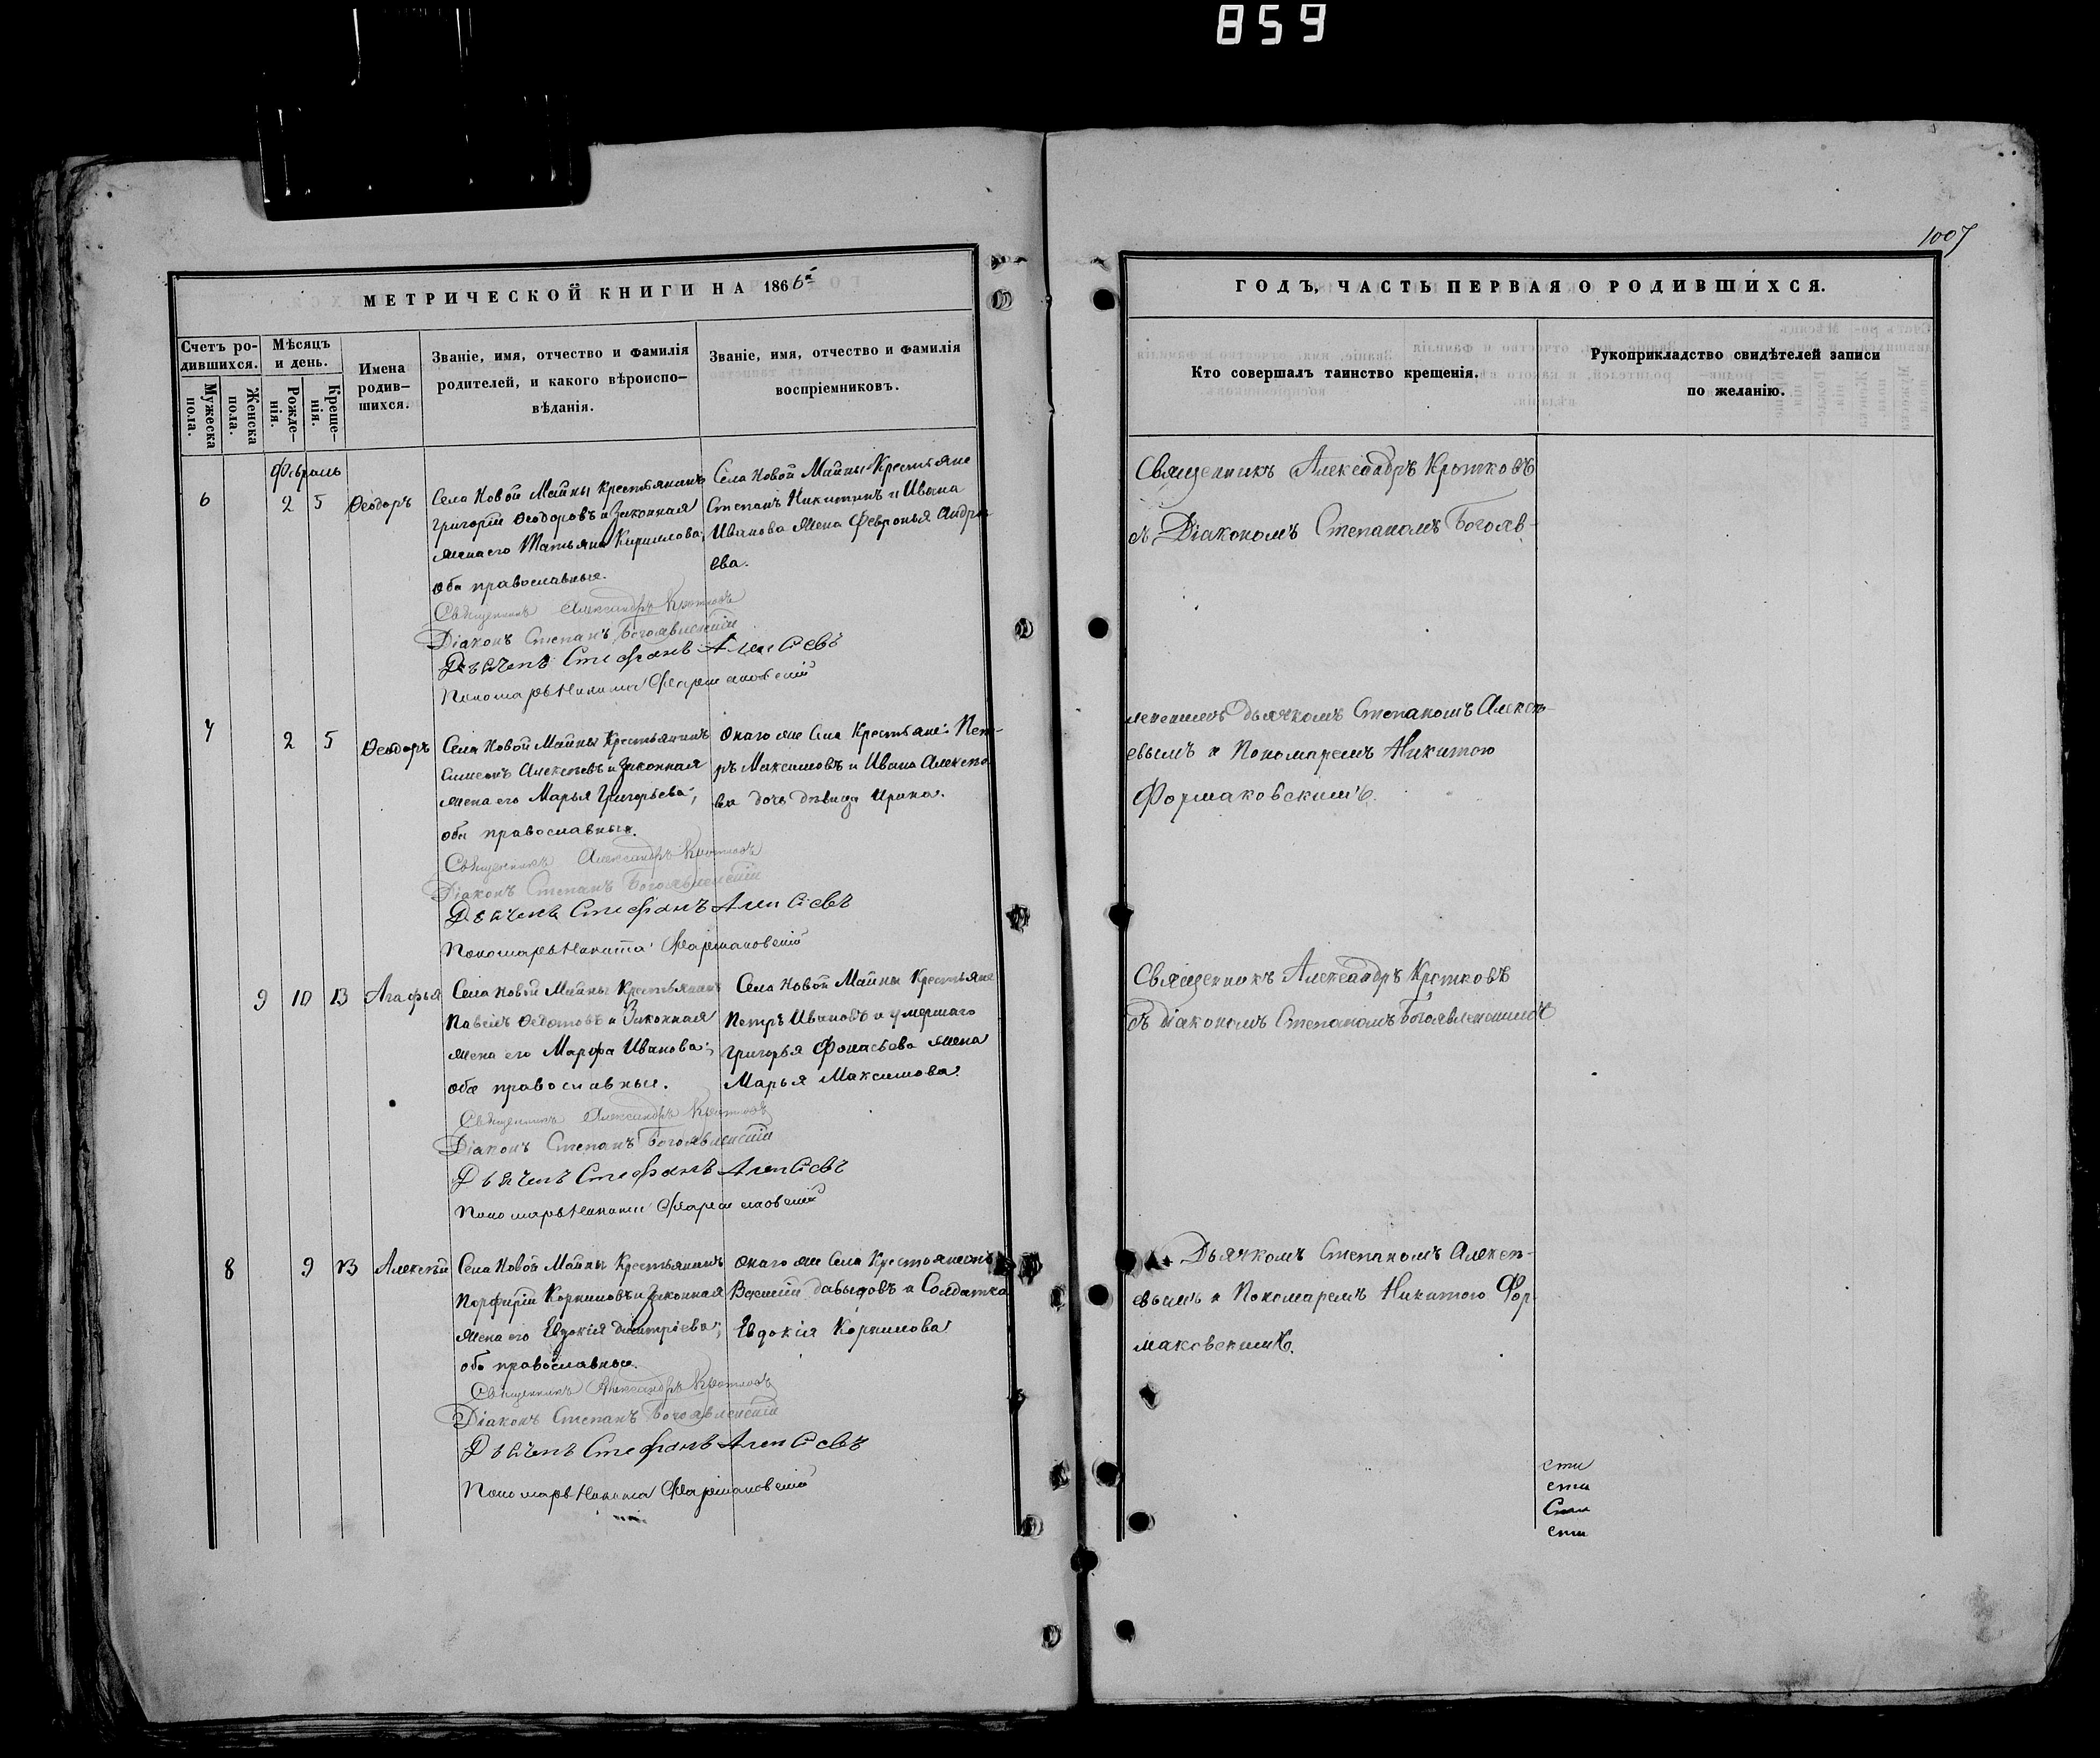 859
1007
МЕТРИЧЕСКОЙ КНИГИ НА 1866й
Счетъ ро-
дившихся.
Мужеска
пола.
Женска
пола.
Мѣсяцъ
и день.
Рожде-
нія.
Креще-
нія.
Имена
родив-
шихся.
Званіе, имя, отчество и фамилія
родителей, и какого вѣроиспо-
вѣданія.
Званіе, имя, отчество и фамилія
воспріемниковъ.
Февраль
6 2 5 Ѳеодоръ
Села Новой Майны крестьянинъ
Григорій Ѳеодоровъ и Законная
жена его Татьяна Кирилова;
оба православные.
Села Новой Майны Крестьяне
Степанъ Никитинъ и Ивана
Иванова жена Февронья Андре
ева.
Священникъ Александръ Кротковъ
Діаконъ Степанъ Богоявленскій
Дьячекъ Стефанъ Алексѣевъ
Пономарь Никита Фармаковскій
7 2 5 Ѳеодоръ
Села Новой Майны Крестьянинъ
Симеонъ Алексѣевъ и Законная
жена его Марья Григорьева;
оба православные.
Онаго же Села Крестьяне: Пет-
ръ Максимовъ и Ивана Алексѣе
ва дочь дѣвица Ирина.
Священникъ Александръ Кротковъ
Діаконъ Степанъ Богоявленскій
Дьячекъ Стефанъ Алексѣевъ
Пономарь Никита Фармаковскій
9 10 13 Агафья
Села Новой Майны Крестьянинъ
Павелъ Ѳедотовъ и Законная
жена его Марфа Иванова;
оба православные.
Села Новой Майны Крестьяне
Петръ Ивановъ и умершаго
Григорья Фонасьева жена
Марья Максимова.
Священникъ Александръ Кротковъ
Діаконъ Степанъ Богоявленскій
Дьячекъ Стефанъ Алексѣевъ
Пономарь Никита Фармаковскій
8 9 13 Алексѣй
Села Новой Майны Крестьянинъ
Порфирій Корниловъ и Законная
жена его Евдокія Димитріева;
оба православные.
Онаго же Села Крестьянинъ
Василій Давыдовъ и Солдатка
Евдокія Корнилова
Священникъ Александръ Кротковъ
Діаконъ Степанъ Богоявленскій
Дьячекъ Стефанъ Алексѣевъ
Пономарь Никита Фармаковскій
ГОДЪ, ЧАСТЬ ПЕРВАЯ О РОДИВШИХСЯ.
Кто совершалъ таинство крещенія.
Рукоприкладство свидѣтелей записи
по желанію.
Священникъ Александръ Кротковъ
съ Діакономъ Степаномъ Богояв-
ленскимъ дьячкомъ Степаномъ Алексѣ-
евымъ и Пономаремъ Никитою
Формаковскимъ.
Священникъ Александръ Кротковъ
съ Діакономъ Степаномъ Богоявленскимъ
Дьячкомъ Степаномъ Алексѣ-
евымъ и Пономаремъ Никитою Фор-
маковскимъ.